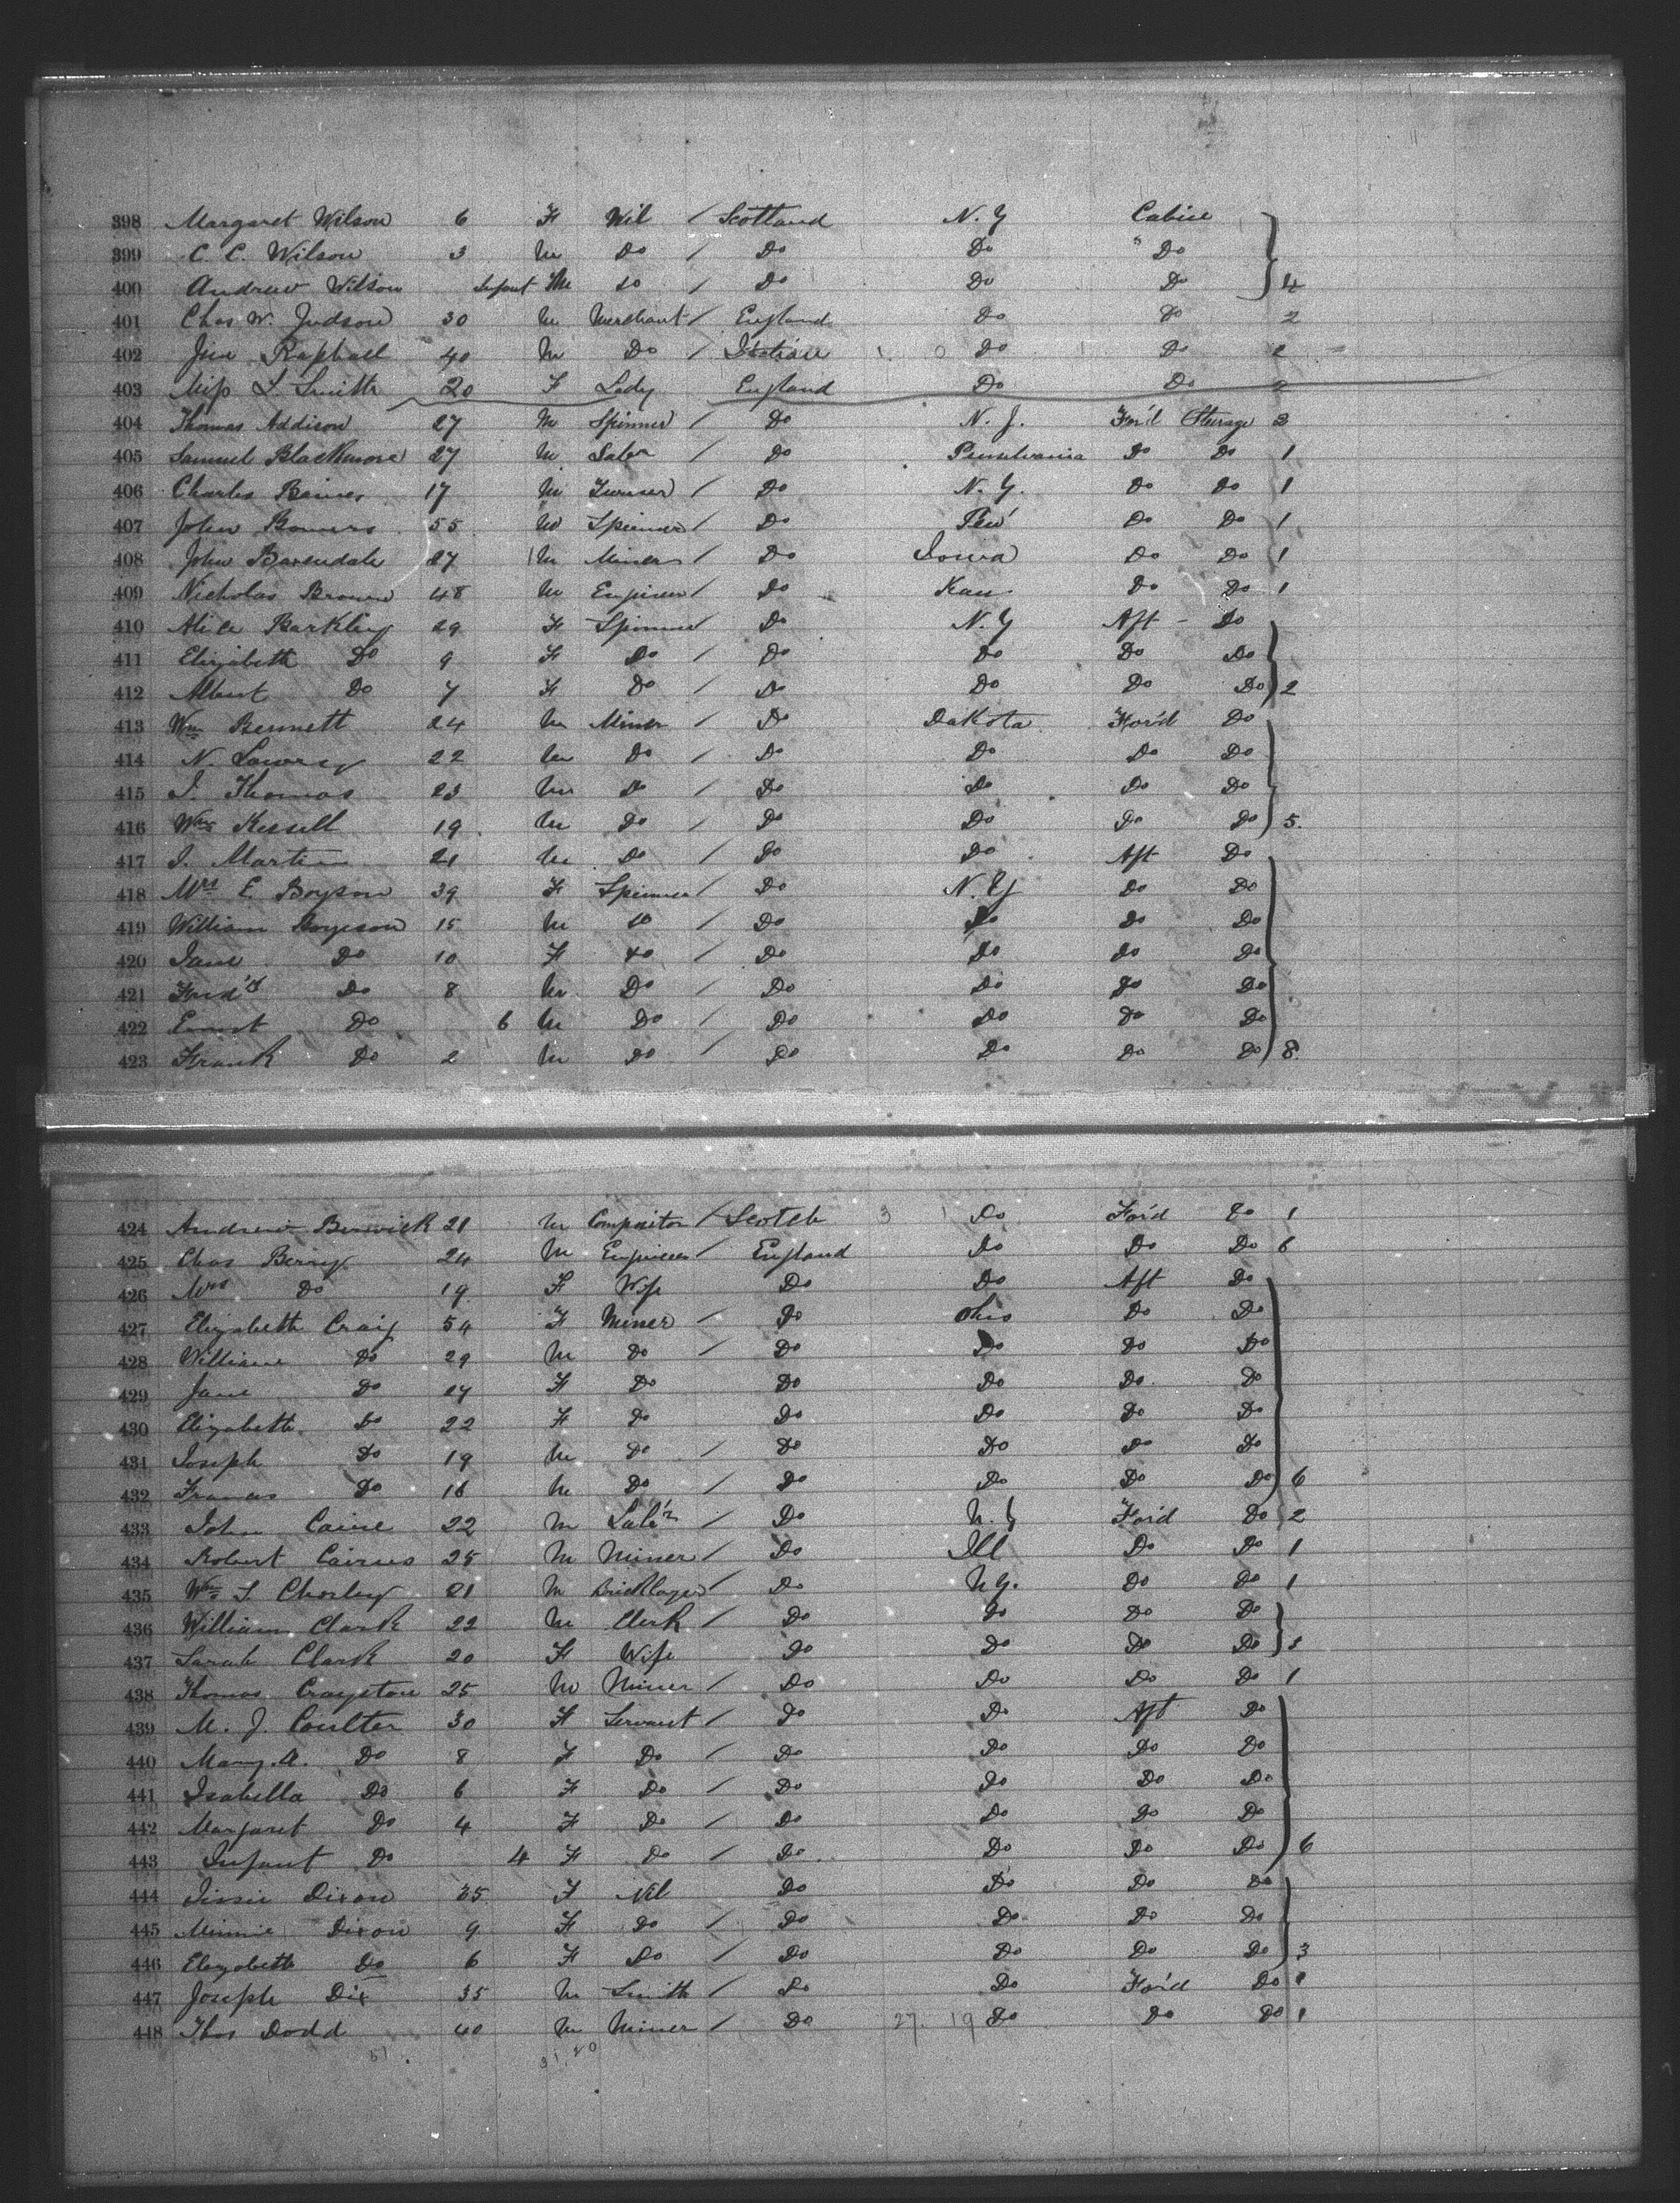 398 Margaret Wilson 6 F Nil / Scotland N.Y Cabin
399 C. C. Wilson 3 M Do / Do Do Do
400 Andrew Wilson Infant M Do / Do Do Do 4
401 Chas W. Judson 30 M Merchant / England Do Do 2
402 Raphael 40 M Do / Do Do 2
403 Miss L. Smith 20 F Lady England Do Do 2
404 Thomas Addison 27 M Spinner / Do N.J. For'd Sterage 3
405 Samuel Blackmore 27 M Labr / Do Pennslvania Do Do 1
406 Charles Baines 17 M / Do N.Y. Do Do 1
407 John 55 M Spinner / Do Pen' Do Do 1
408 John Baxendale 27 M Miner / Do Iowa Do Do 1
409 Nicholas Brown 48 M Engineer / Do Kan. Do Do 1
410 Alice Barkley 29 F Spinner Do N.Y Aft - Do
411 Elizabeth Do 9 F Do / Do Do Do Do
412 Albert Do 7 F Do / Do Do Do Do 2
413 Wm Bennett 24 M Miner / Do Dakota For'd Do
414 N. Lowry 22 M Do / Do Do Do Do
415 J. Thomas 23 M Do / Do Do Do Do
416 Wm Kessell 19 M Do / Do Do Do Do 5.
417 J. Martin 21 M Do / Do Do Aft Do
418 Mrs E. Boyson 39 F Spinner / Do N.Y Do Do
419 William Boyeson 15 M Do / Do Do Do Do
420 Jane Do 10 F Do / Do Do Do Do
421 Fred'k Do 8 M Do / Do Do Do Do
422 Ernest Do 6 M Do / Do Do Do Do
423 Frank Do 2 M Do / Do Do Do Do 8.
424 Andrew Berwick 21 M Compositor / Scotch 3 1 Do For'd Do 1
425 Chas Berry 24 M Engineer / England Do Do Do 6
426 Mrs Do 19 F Wife Do Do Aft Do
427 Elizabeth Craig 54 F Miner / Do Ohio Do Do
428 William Do 29 M Do / Do Do Do Do
429 Jane Do 27 F Do Do Do Do Do
430 Elizabeth Do 22 F Do Do Do Do Do
431 Joseph Do 19 M Do / Do Do Do Do
432 Francis Do 16 M Do / Do Do Do Do 6
433 John Caine 22 M Lab'r / Do N.Y For'd Do 2
434 Robert Cairns 25 M Miner / Do Ill Do Do 1
435 Wm S. Chorley 21 M Bricklayer / Do N.Y. Do Do 1
436 William Clark 22 M Clerk / Do Do Do Do
437 Sarah Clark 20 F Wife Do Do Do Do
438 Thomas Crayston 25 M Miner / Do Do Do Do 1
439 M. J. Coulter 30 F Servant / Do Do Aft Do
440 Mary.A. Do 8 F Do / Do Do Do Do
441 Isabella Do 6 F Do / Do Do Do Do
442 Margaret Do 4 F Do / Do Do Do Do
443 Infant Do 4 F Do / Do Do Do Do 6
444 Dixon 35 F Nil Do Do Do Do
445 Minnie Dixon 9 F Do / Do Do Do Do
446 Elizabeth Do 6 F Do / Do Do Do Do 3
447 Joseph Dix 35 M Smith / Do Do For'd Do 1
448 Thos Dodd 40 M Miner / Do 27. 19 Do Do Do 1